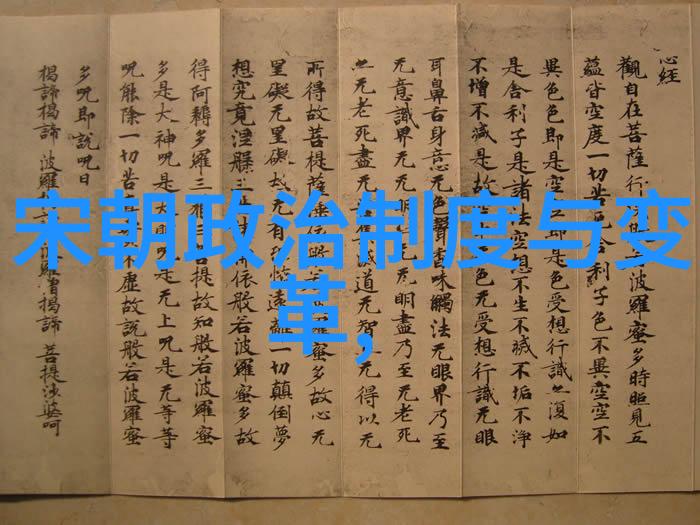 宋朝政治制度与变
革,
心经
觀自在菩薩行波羅蜜多時照見五
蘊皆空度一切苦厄舍利子色不異空空不
異色色即是空空即是色受想行識亦復如
是舍利子是諸法空想不生不滅不垢不淨
不增不減是故色无受想行識无眼
耳鼻舌身意无色聲香味觸法无眼界乃至
无意識界无无明无明盡乃至无老死
亦无老死盡无滅道无智亦无得以无
所得故菩提薩埵依般若波羅蜜多故心无
罣礙无罣礙故无有恐怖遠離一切顛倒夢
想究竟涅槃三世依般若波羅蜜多故
得阿耨多羅三藐三菩提故知般若波羅蜜
多是大神呪是大明呪是无上呪是无等等
呪能除一切苦不虛故說般若波羅蜜
多呪即說呪曰
揭諦揭諦 波羅揭 波羅僧揭諦 菩提莎婆呵